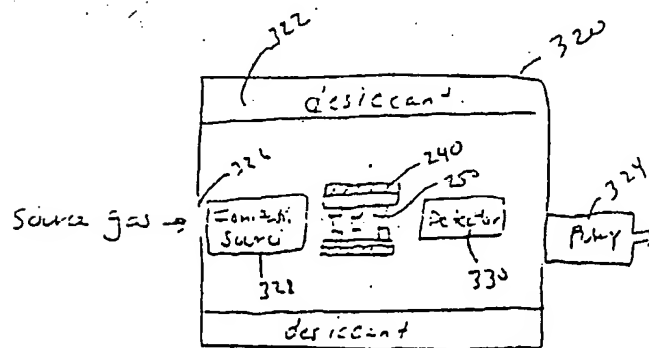 322
320
desiccant
326
240
250
324
Source gas →
Ionizati
Source
Detector
Pump
328
330
desiccant